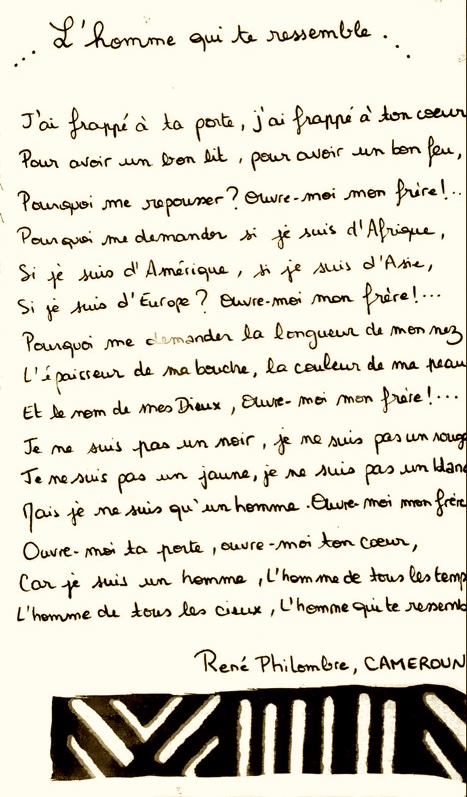 ... L'homme qui te ressemble ...
J'ai frappé à ta porte, j'ai frappé à ton coeur
Pour avoir un bon lit, pour avoir un bon feu,
Pourquoi me repousser ? Ouvre-moi mon frère !..
Pourquoi me demander si je suis d'Afrique,
Si je suis d'Amérique, si je suis d'Asie,
Si je suis d'Europe ? Ouvre-moi mon frère !...
Pourquoi me demander la longueur de mon nez
L'épaisseur de ma bouche, la couleur de ma peau
Et le nom de mes Dieux, Ouvre-moi mon frère !...
Je ne suis pas un noir, je ne suis pas un roug
Je ne suis pas un jaune, je ne suis pas un blanc
Mais je ne suis qu'un homme. Ouvre-moi mon frère
Ouvre-moi ta porte, ouvre-moi ton cœur,
Car je suis un homme, L'homme de tous les temp
L'homme de tous les cieux, L'homme qui te ressemb
René Philombre, CAMEROUN